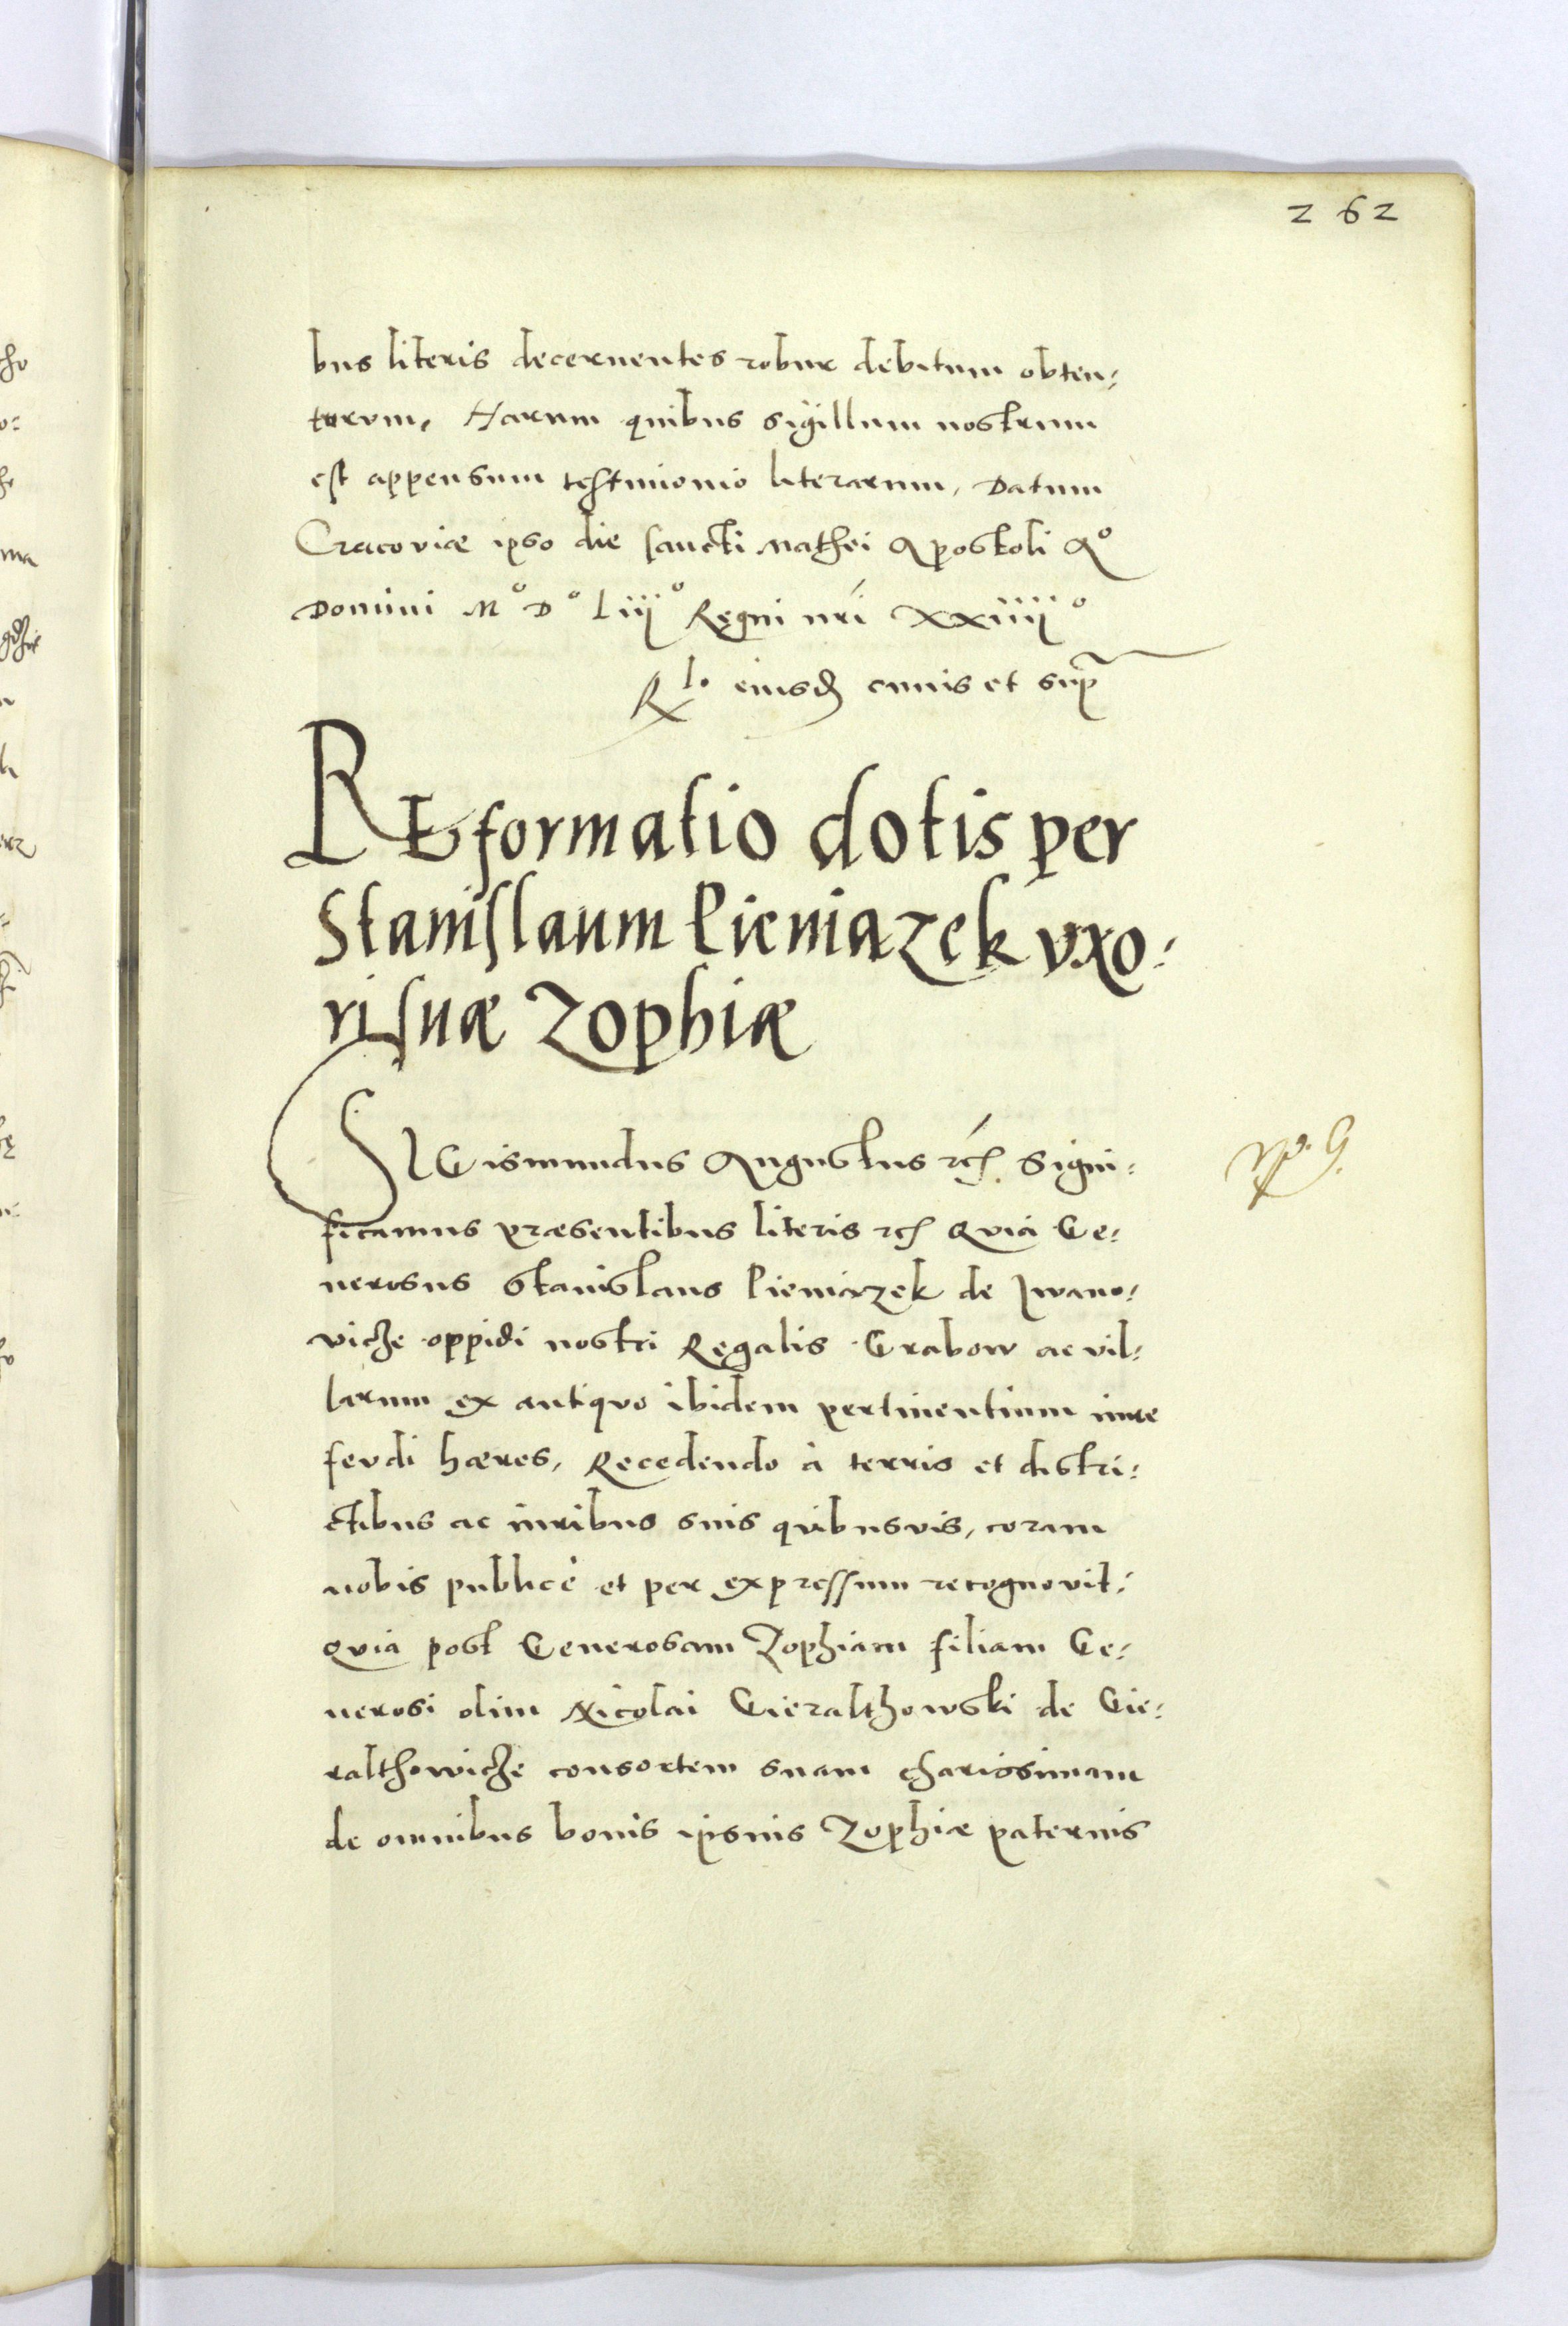 262
bus literis decernentes robur debitum obten:
turum, Harum quibus sigillum nostrum
est appensum testimonio literarum, Datum
Cracoviæ ipso die sancti Mathei Apostoli Aº
Domini Mº Dº Liijº Regni nri XXiiijº
Rlo eiusd cuuis et supr
REformatio dotis per
Stanislaum Pieniazek vxo:
ri suæ Zophiæ
SIGismundus Augustus rcʒ. Signi:
ficamus præsentibus literis rcʒ Quia Ge:
nerosus Stanislaus Pieniazek de Jwano:
vicze oppidi nostri Regalis Grabow ac vil:
larum ex antiquo ibidem pertinentium iure
fevdi hæres, Recedendo à terris et distri:
ctibus ac iuribus suis quibusvis, coram
nobis publicè et per expressum recognovit:
Quia post Generosam Zophiam filiam Ge:
nerosi olim Nicolai Gieralthowski de Gie:
ralthowicze consortem suam charissimam
de omnibus bonis ipsius Zophiæ paternis